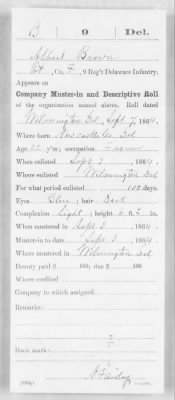 B 9 Del.
Albert Brown
Pt., Co. F, 9 Reg't Delaware Infantry.
Appears on
Company Muster-in and Descriptive Roll
of the organization named above. Roll dated
Wilmington Del, Sept 7, 1864.
Where born New Castle Co. Del
Age 22 y'rs; occupation
When enlisted Sept 3, 1864.
Where enlisted Wilmington Del
For what period enlisted 100 days.
Eyes Blue; hair Dark
Complexion Light; height 6 ft. 2 in.
When mustered in Sept 3, 1864.
Muster-in date Sept 3, 1864.
Where mustered in Wilmington Del
Bounty paid $ 100; due $ 100
Where credited
Company to which assigned
Remarks:
Book mark:
(356g)